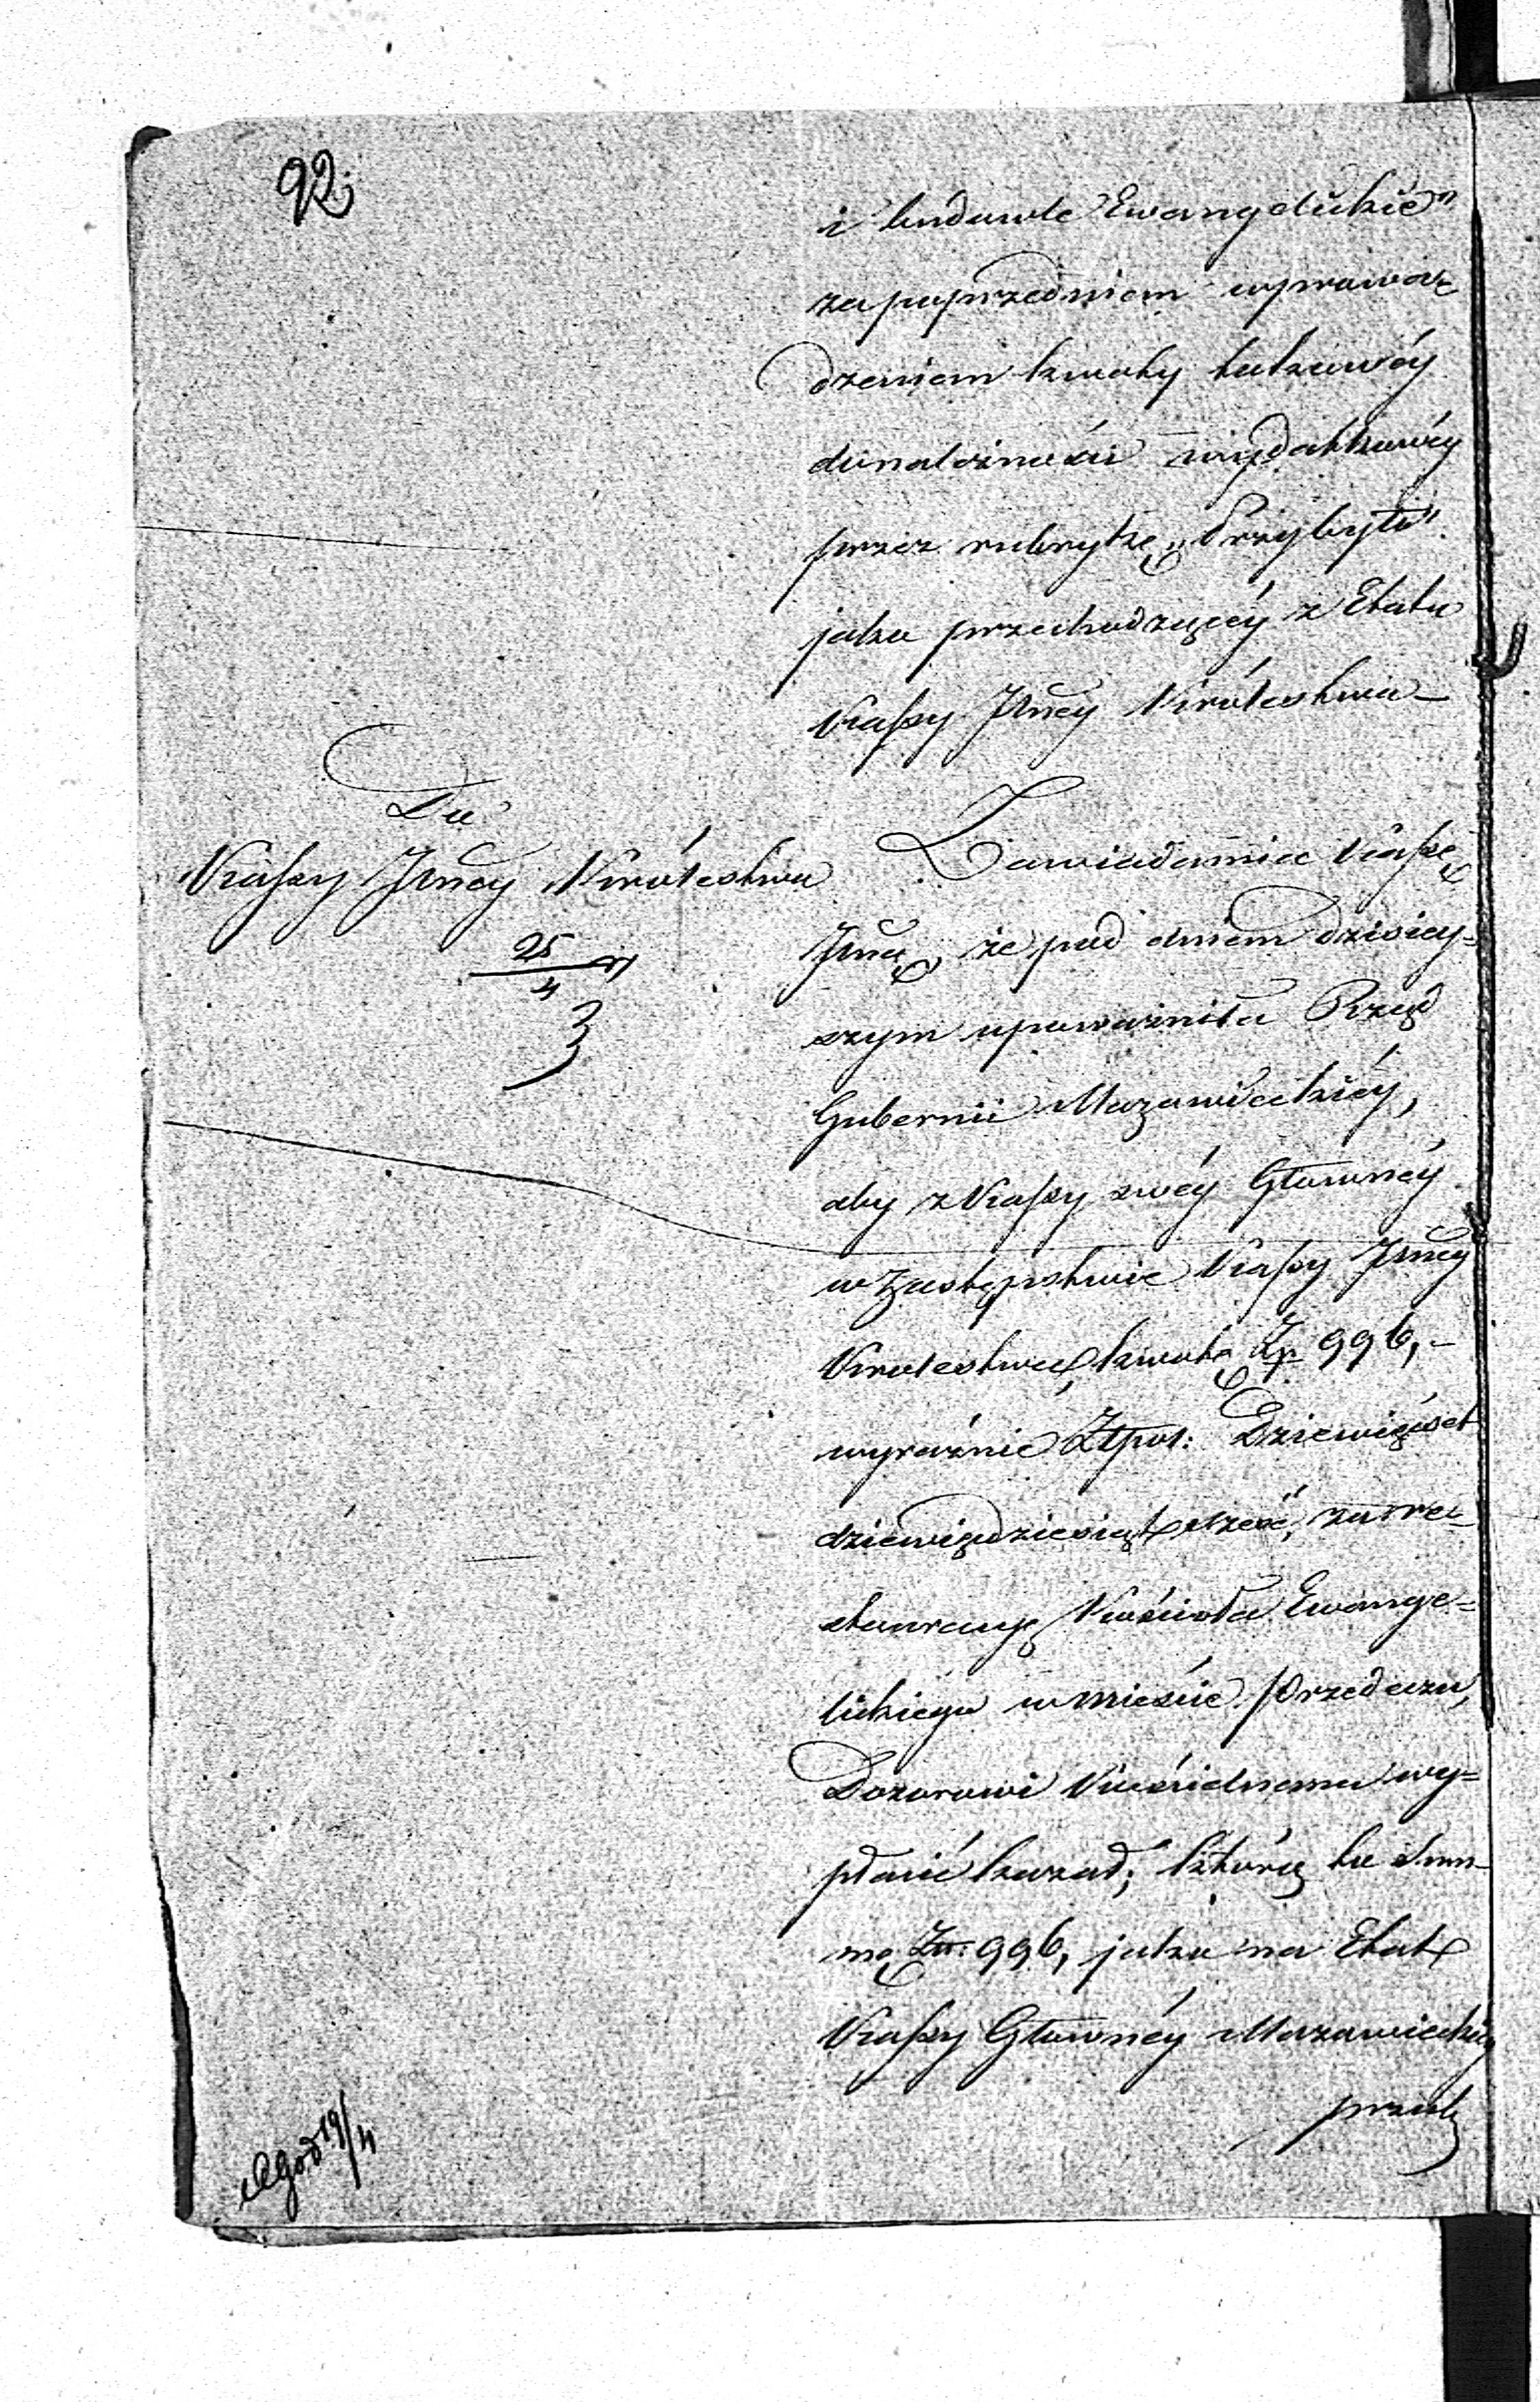 92.
i budowle Ewangelickie"
za poprzedniem wyprowa-
dzeniem kwoty takowéy
do należności wydatkowéy
przez rubrykę „Przybyło"
jako przechodzącéy z Etatu
Kassy Jlnéy Królestwa –
Do
Kassy Jlnéy Królestwa
25
4
3
Zawiadamia Kassę
Jlną, że pod dniem dzisiey=
szym upoważniła Rząd
Gubernii Mazowieckiéy,
aby z Kassy swéy Głównéy
w zastępstwie Kassy Jlnéy
Królestwa, kwotę Zp. 996,-
wyraźnie Złpol: Dziewięćset
dziewięćdziesiąt sześć, za re-
stauracyę Kościoła Ewange=
lickiego w mieście Przedeczu,
Dozorowi Kościelnemu wy=
płacić kazał; którą to Sum-
mę Złl: 996, jako na Etat
Kassy Głównéy Mazowieckiéy
przeh
19/4